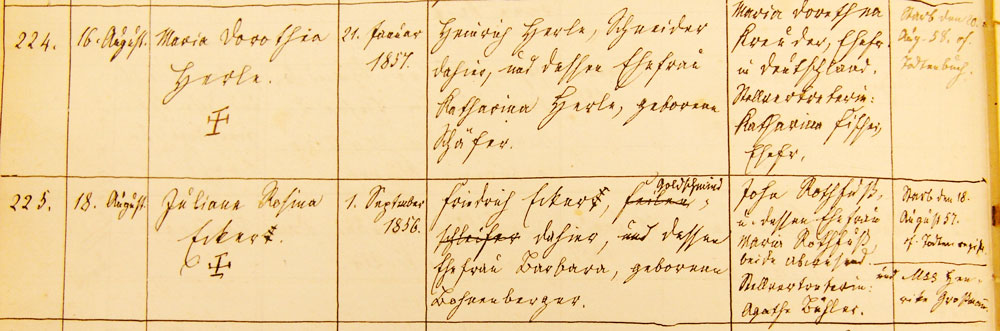 224.
16. August.
Maria Dorothea
Herle.
21. Januar
1857.
Heinrich Herle, Schneider
dahier, und dessen Ehefrau
Katharina Herle, geborene
Schäfer.
Maria Dorothea
Kreuder, Ehefr.
in Deutschland.
Stellvertreterin:
Katharina Fischer,
Ehefr.
Starb den 20.
Aug. 58. cf.
Todtenbuch.
225.
18. August.
Juliane Rosina
Eckert.
1. September
1856.
Goldschmied
Friedrich Eckert, Feilen-
schleifer dahier, und dessen
Ehefrau Barbara, geborene
Bohnenberger.
Joh. Rothfuß,
u. dessen Ehefrau
Maria Rothfuß
beide abwesend.
Stellvertreterin:
Agathe Bühler.
Starb den 18.
August 57.
cf. Todten
und Mss Hen-
rike Großmann